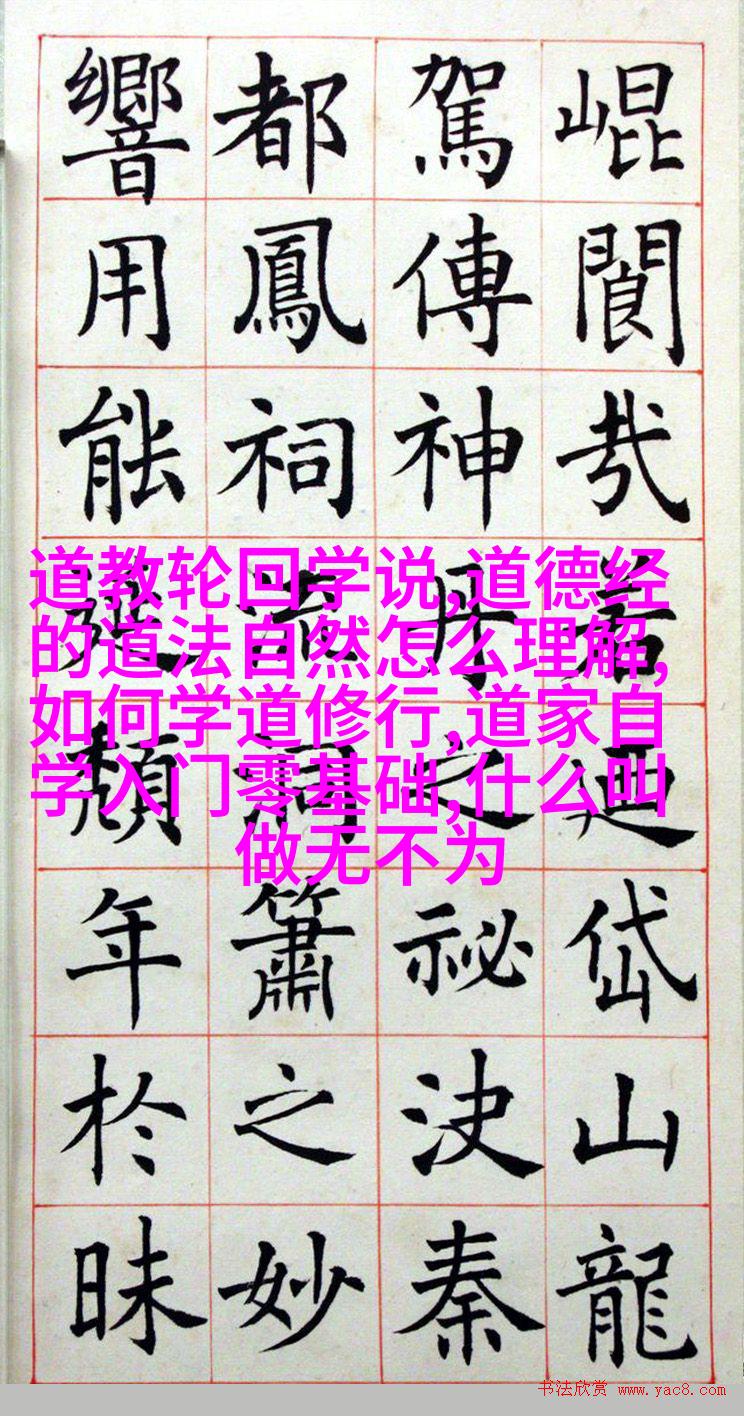 崐閬哉若廼岱山龍
駕傳神丹之祕決秦
都鳳祠流洞簫之妙
響用能延頹年於昧
道教轮回学说,道德经
的道法自然怎么理解,
如何学道修行,道家自
学入门零基础,什么叫
做无不为
书法欣赏 www.yac8.com